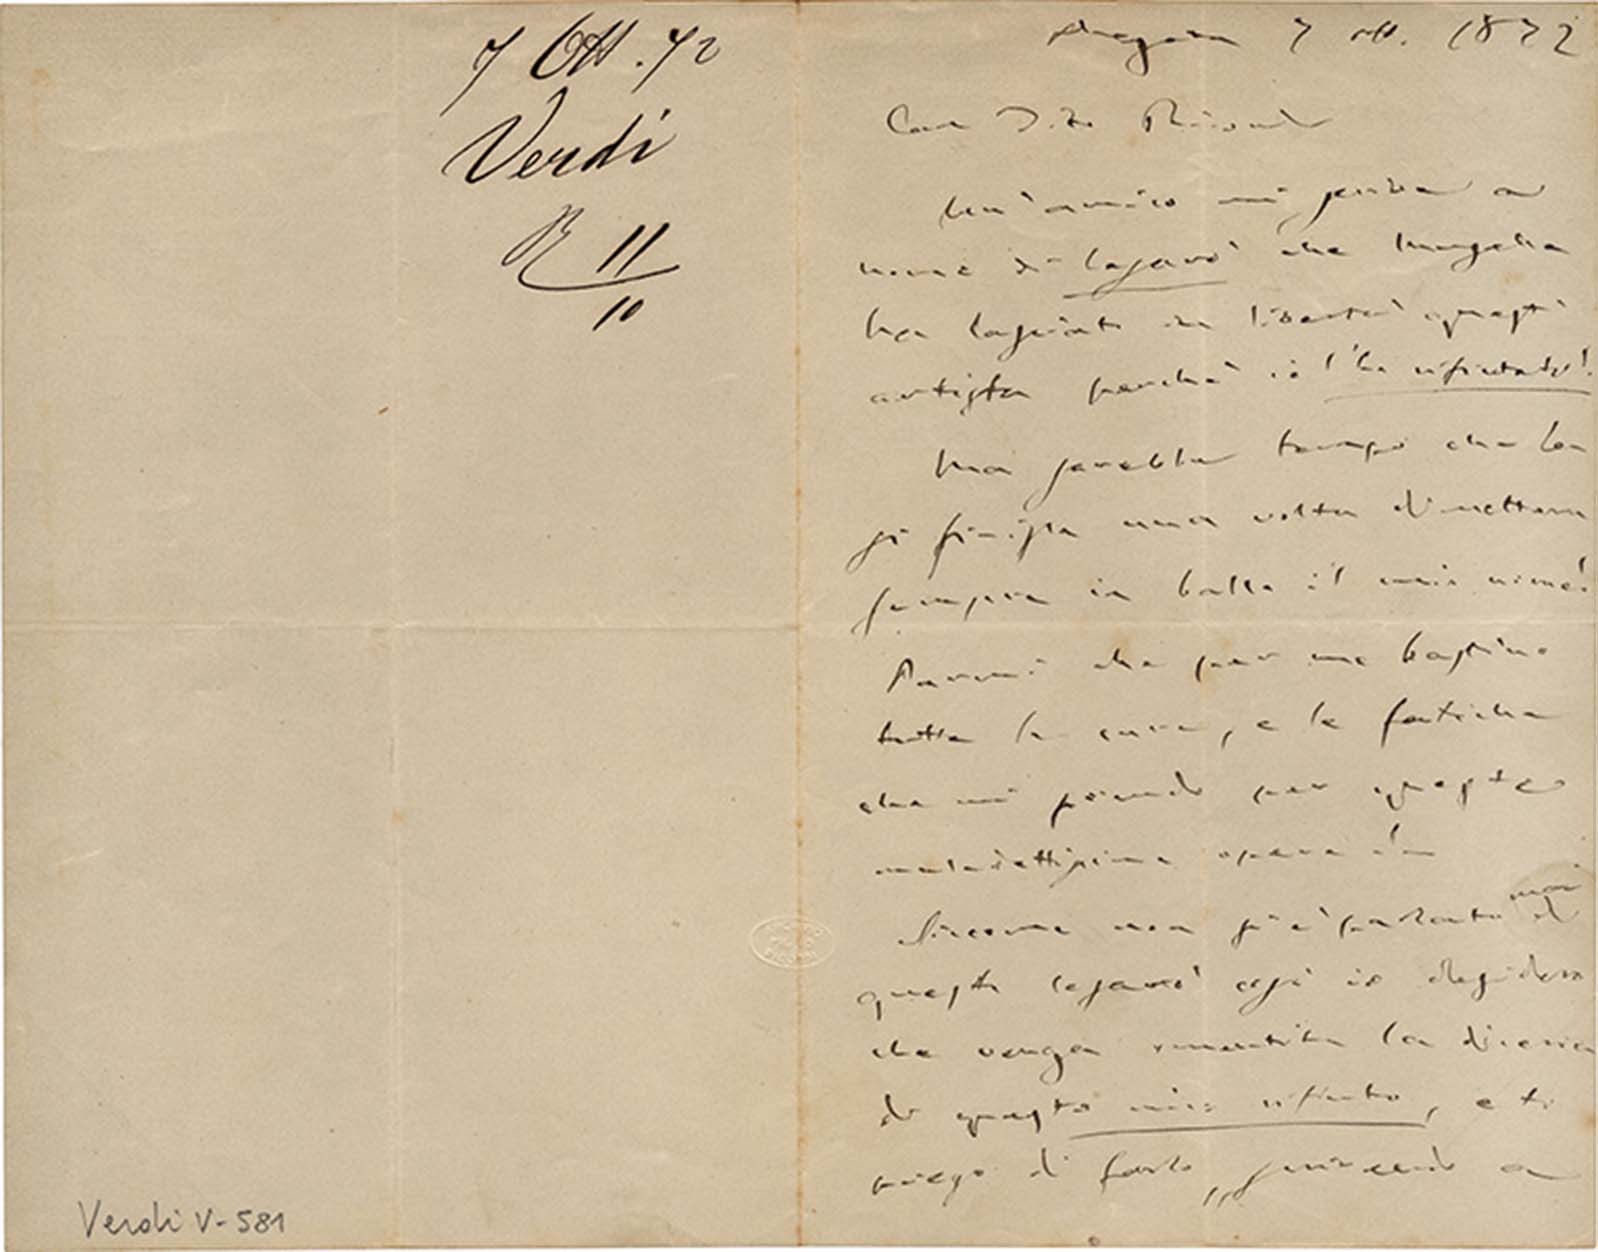 7 Ott. 72
Verdi
R 11
10
Verdi V-581
7 ott. 1872
Caro Tito Ricordi
Un'amico mi scrive a
nome di Capponi che Musella
ha lasciato in libertà questi
artista perchè io l'ho rifiutato!
Ma sarebbe tempo che la
si finisse una volta di mettere
sempre in ballo il mio nome!
Parmi che per me bastino
tutte le cure, e le fatiche
che mi prendo per queste
maladettissime opere
Siccome non si è parlato mai di
questo così io desidero
che venga smentita la diceria
di questo mio rifiuto, e ti
prego di farlo, scrivendo a